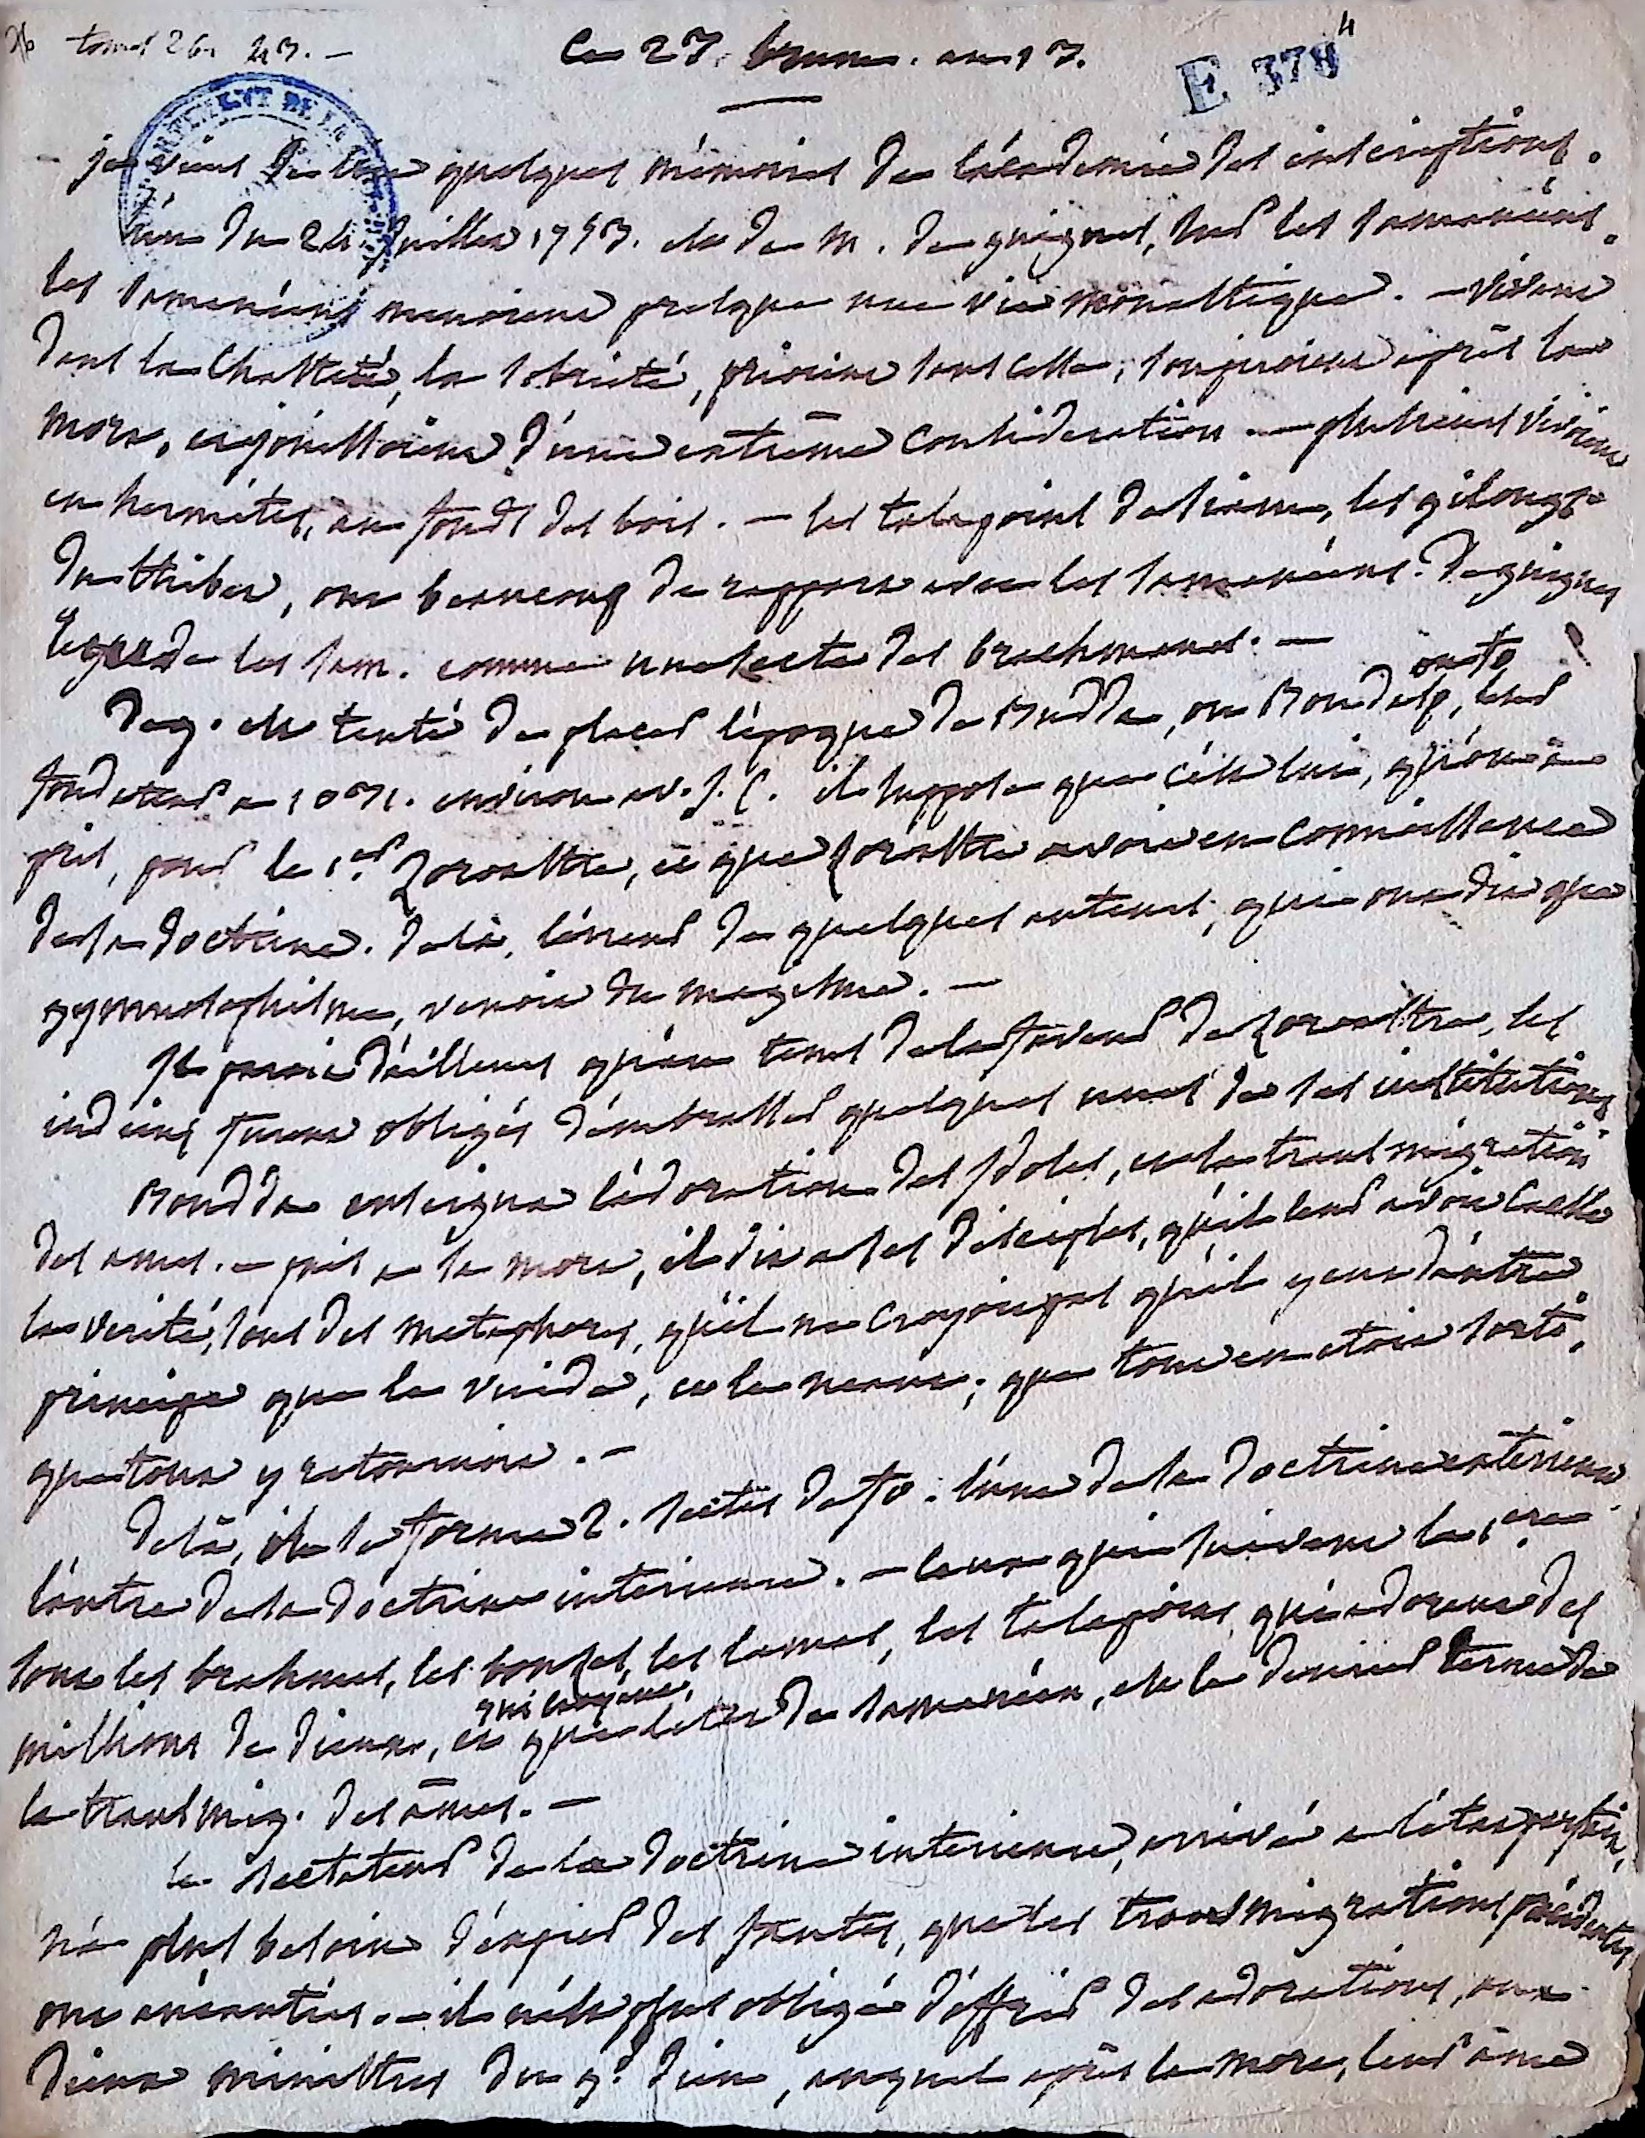 tome 26. 43. —
Ce 27. brum. an 13.
E 378 4
je viens de lire quelques mémoires de l'académie des inscriptions.
l'un du 24. juillet 1753. est de m. de guignes, sur les samanéens.
les samanéens menoient presque une vie monastique. — vivant
dans la chasteté, la sobriété, prioient sans cesse, soupiroient après la
mort, et jouissoient d'une extrême considération. — plusieurs vivoient
en hermites, au fonds des bois. — les talapoins de siam, les gilongs
du thibet, ont beaucoup de rapport avec les samanéens. Deguignes
regarde les sam. comme une secte des brachmanes. —
Deg. est tenté de placer l'époque de Budda, ou Boudasp, ou fo, leur
fondateur a 1031. environ av. J. C. il suppose que c'est lui, qu'on a
pris, pour le 1.er Zoroastre, et que Zoroastre avoit eu connaissance
de sa doctrine. de là, l'erreur de quelques auteurs, qui ont dit que
gymnosophisme, venoit du magisme. —
Il paroit d'ailleurs qu'au tems de la faveur de Zoroastre, les
indiens furent obligés d'embrasser quelques unes de ses institutions.
Boudda enseigna l'adoration des Idoles, et la transmigration
des ames. — près a sa mort, il dit a ses disciples, qu'il leur avoit caché
la verité, sous des metaphores, qu'il ne croyoit pas qu'il y eut d'autre
principe que le vuide, et le néant; que tout en etoit sorti,
que tout y retournoit. —
de là, il se forme 2. sectes de fo. l'une de la doctrine exterieure
l'autre de la doctrine interieure. — ceux qui suivent la 1.ere
sont les brahmes, les bonses, les lamas, les talapoins, qui adorent des
millions de dieux, et qui croyent, que l'etat de samanéen, est le dernier terme de
la transmig. des âmes. —
le sectateur de la doctrine interieure, arrivé a l'état parfait,
n'a plus besoin d'expier des fautes, que les transmigrations précédentes
ont anéanties. — il n'est plus obligé d'offrir des adorations, aux
dieux ministres du g.d dieu, auquel après la mort, leur âme